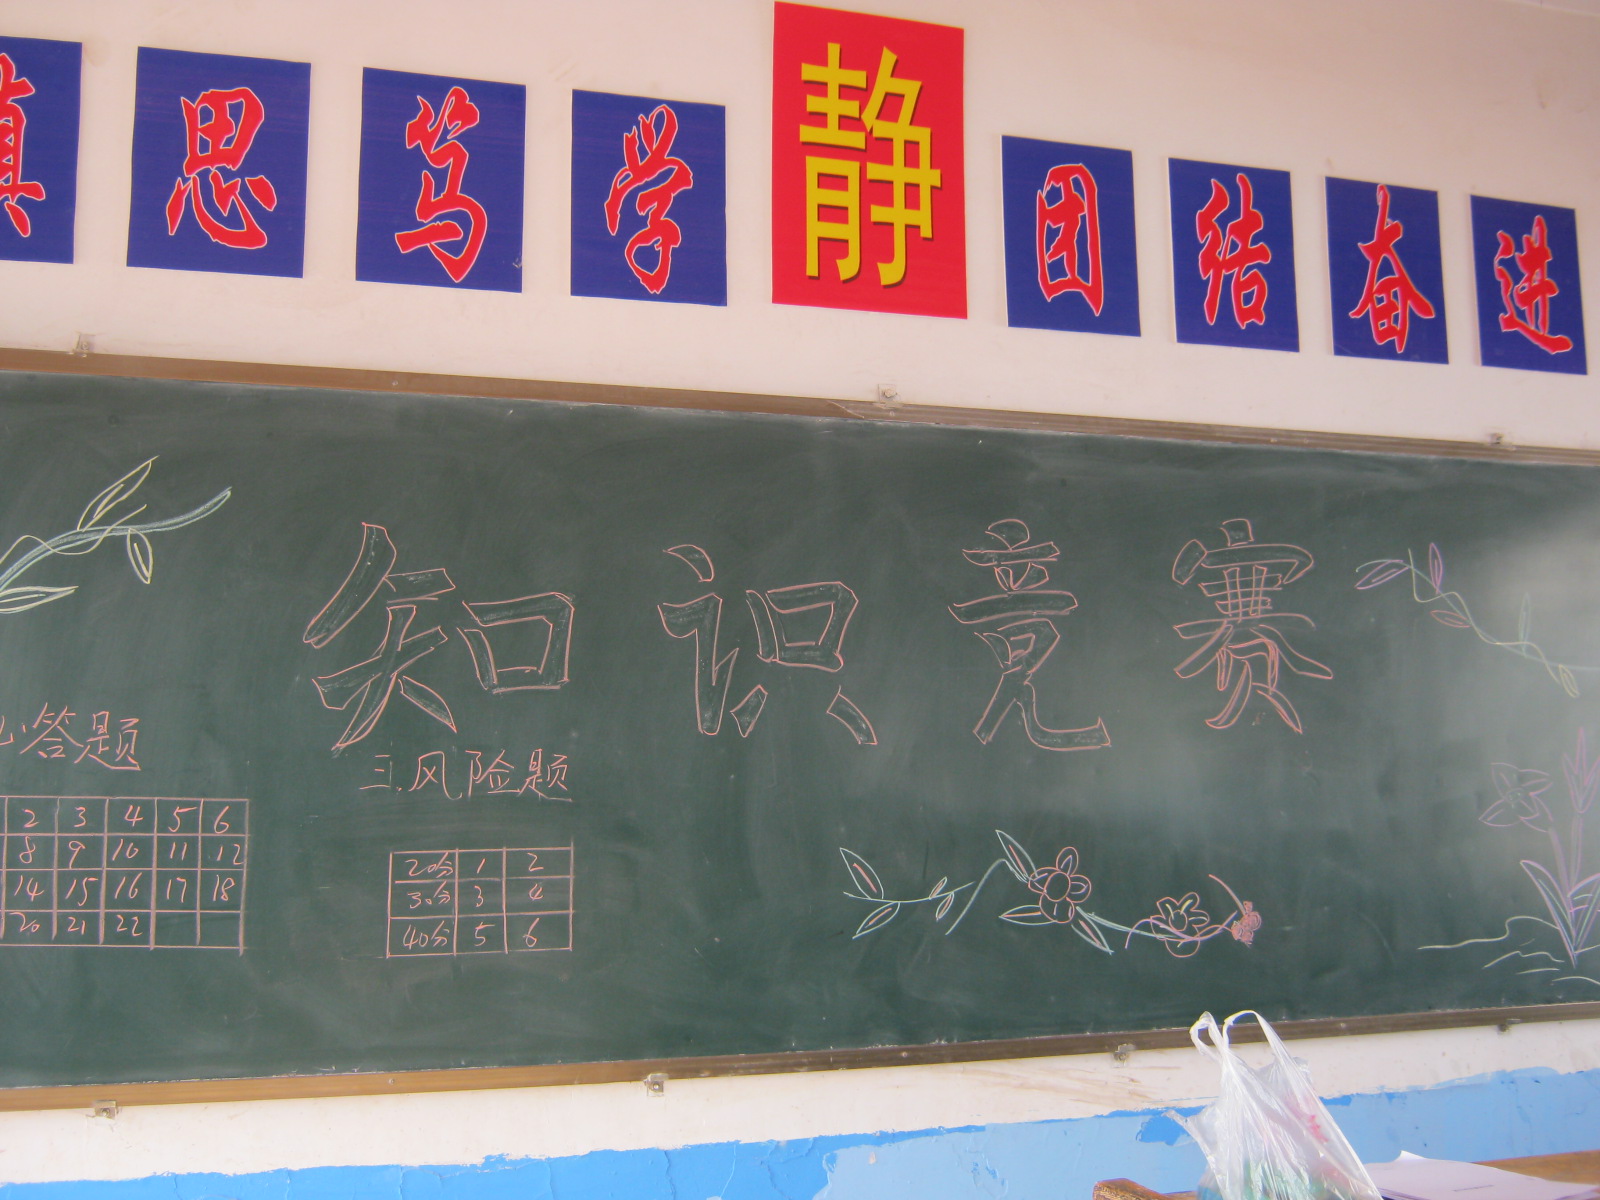 慎思笃学 静 团结奋进
知识竞赛
心答题
2 3 4 5 6
8 9 10 11 12
14 15 16 17 18
20 21 22
三.风险题
20分 1 2
30分 3 4
40分 5 6